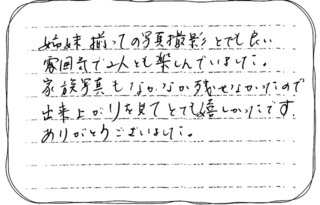 姉妹揃っての写真撮影とても良い
雰囲気で2人とも楽しんでいました。
家族写真もなかなか残せなかったので
出来上がりを見てとても嬉しかったです。
ありがとうございました。